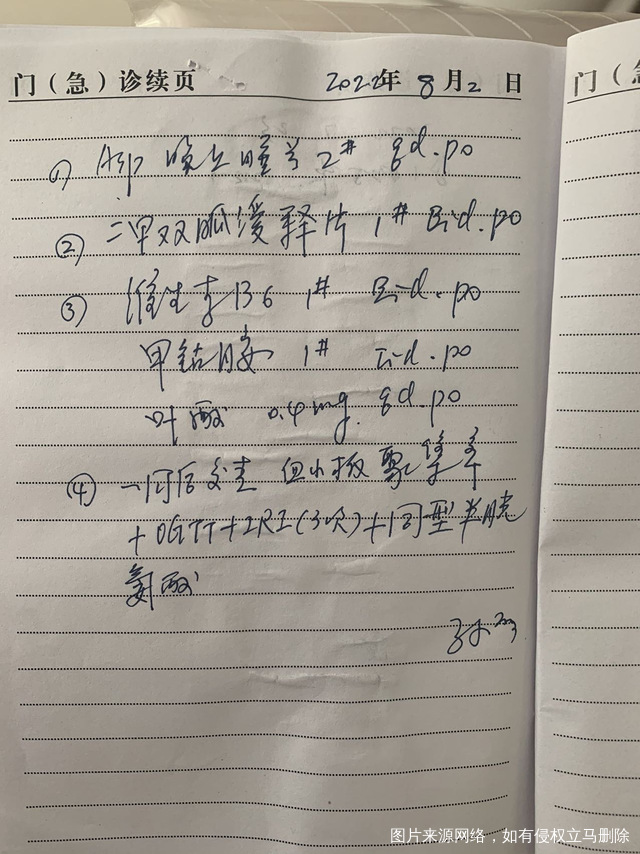 门（急）诊续页 2022年 8 月 2 日
门（急
① Asp 晚上睡前 2# qd.po
② 二甲双胍缓释片 1# Bid.po
③ 维生素B6 1# Bid.po
甲钴胺 1# Bid.po
叶酸 0.4mg qd.po
④ 一周后复查 血小板聚集率
+OGTT+IRI(3次)+同型半胱
氨酸
图片来源网络，如有侵权立马删除